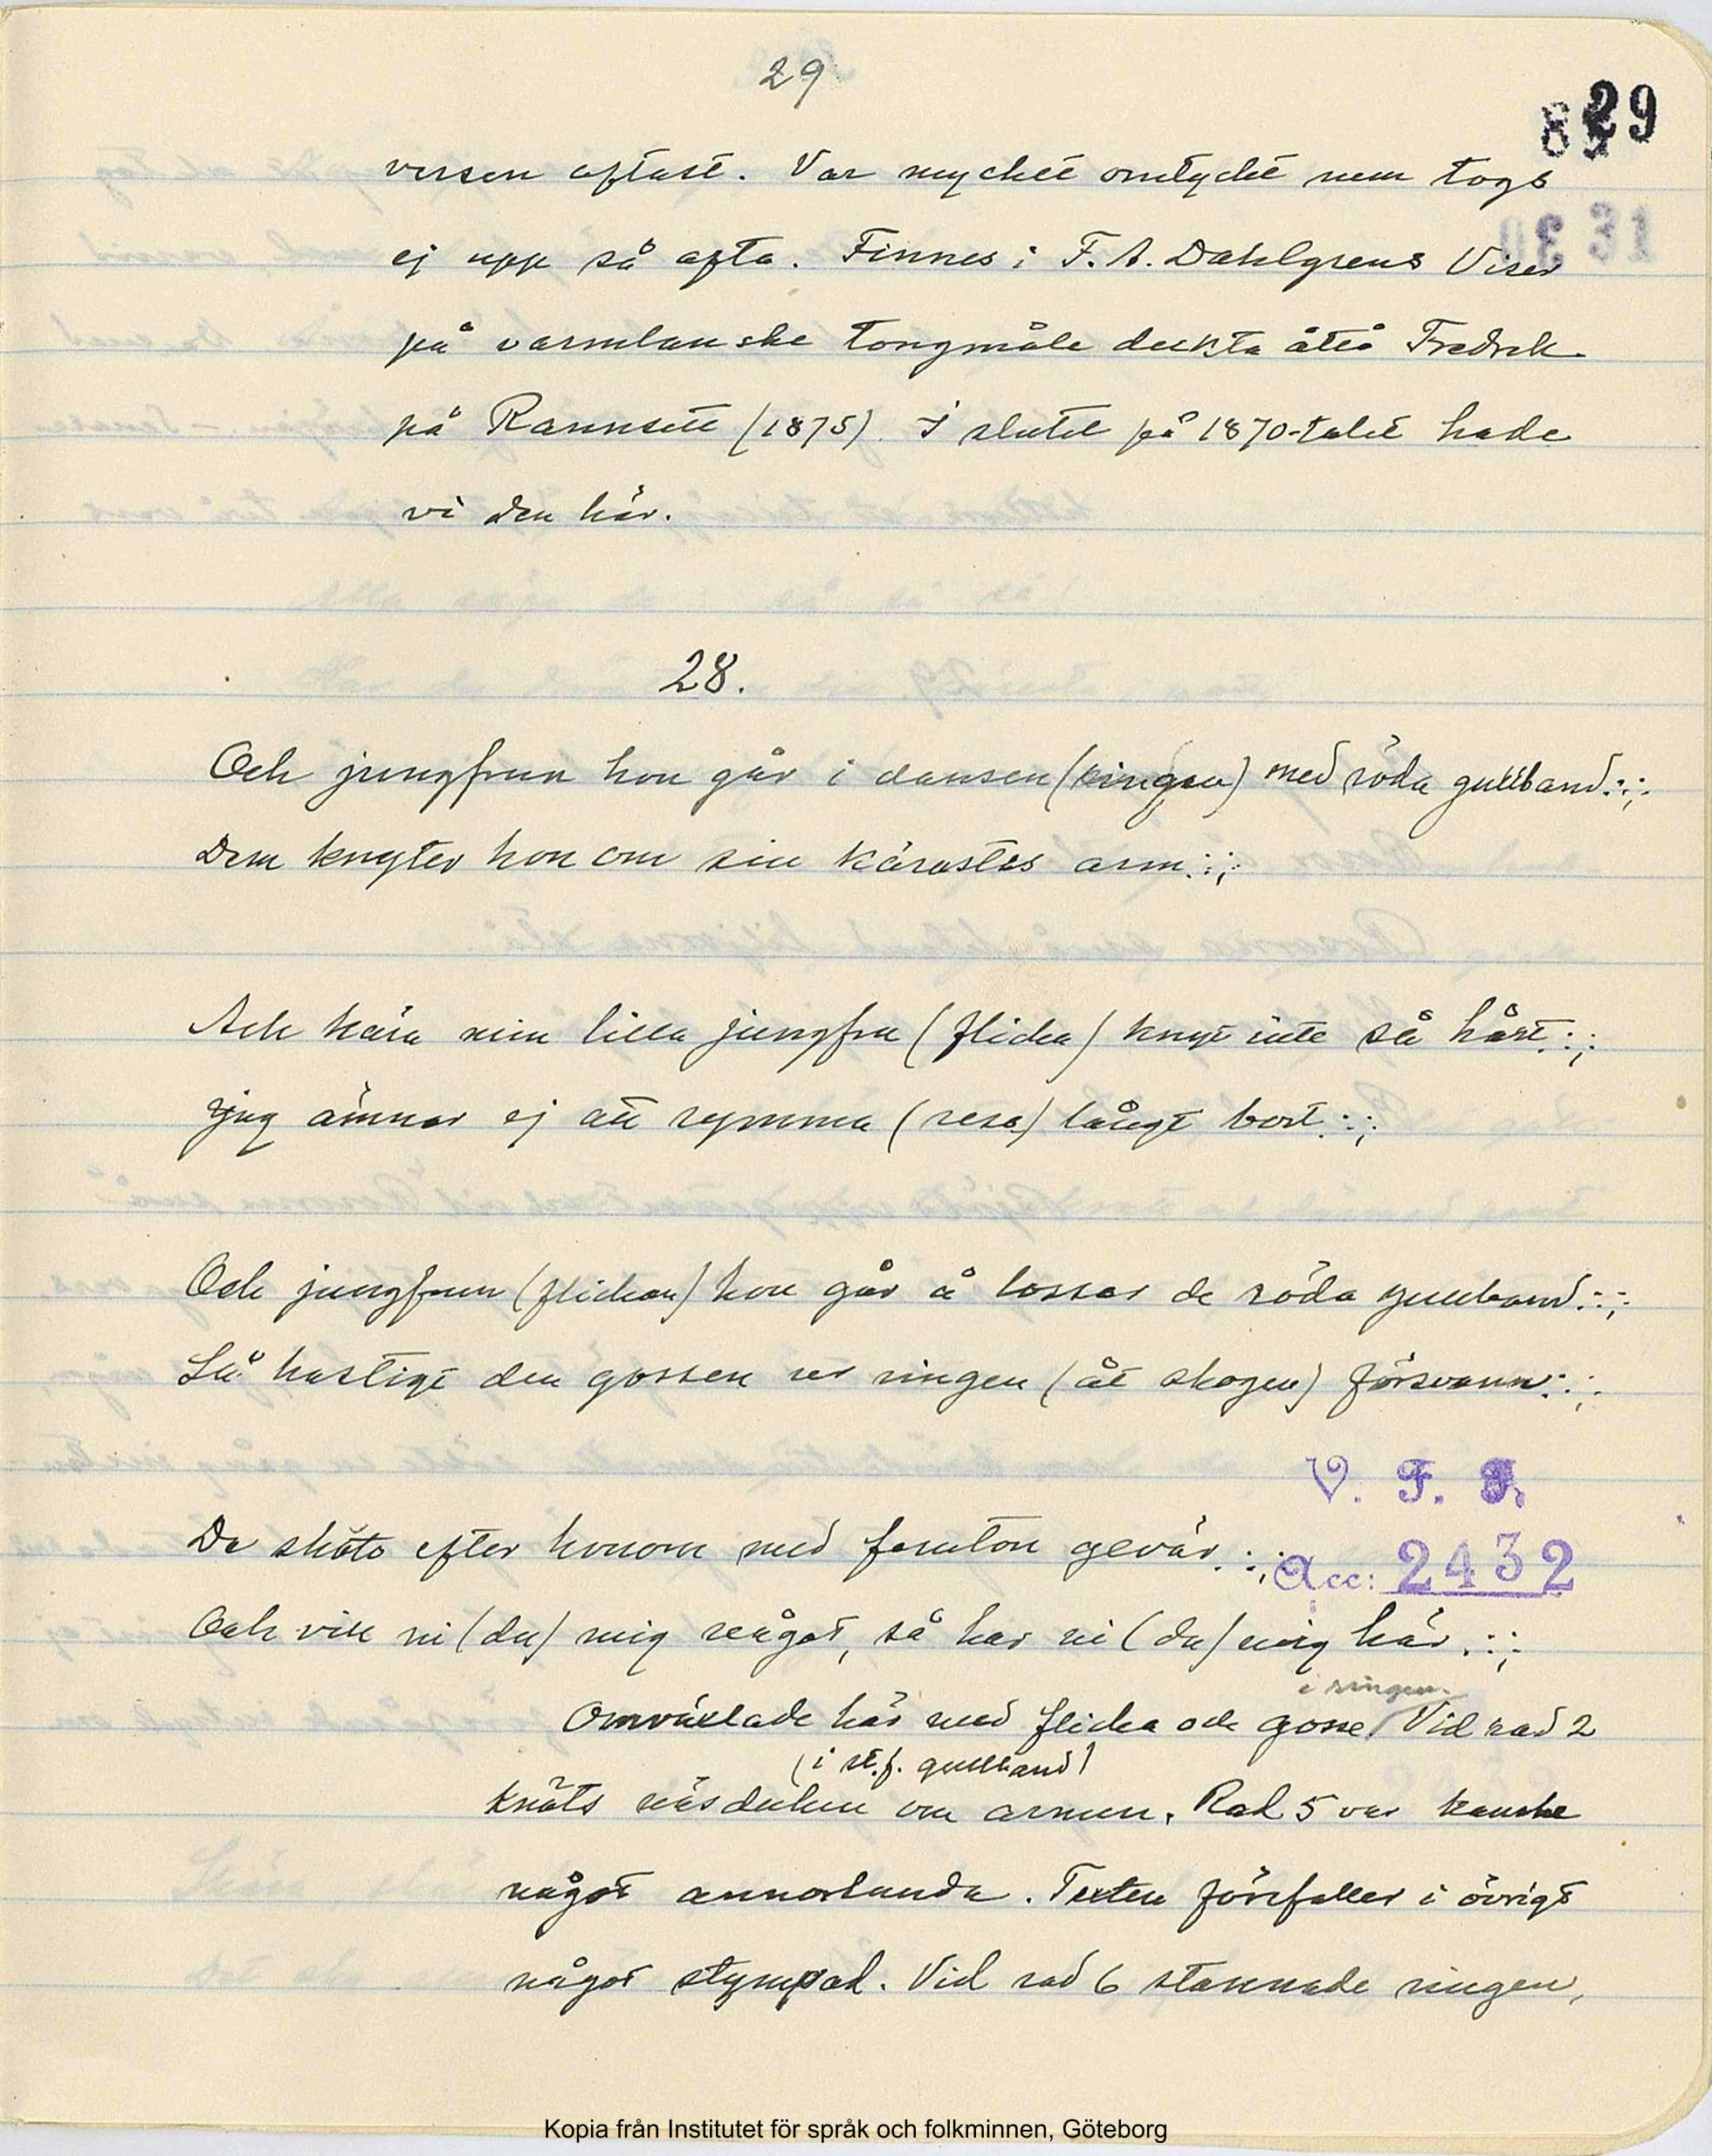 29
29
versen oftast. Var mycket omtyckt men togs
ej upp så ofta. Finnes i F. A. Dahlgrens Viser
på varmlanske tongmåle deckta åttå Fredrek
på Rannsett (1875). I slutet på 1870-talet hade
vi den här.
28.
Och jungfrun hon går i dansen (ringen) med röda gullband :;:
Dem knyter hon om sin kärastes arm :;:
Ack kära min lilla jungfru (flicka) knyt inte så hårt :;:
jag ämnar ej att rymma (resa) långt bort :;:
Och jungfrun (flickan) hon går å lossar de röda gullband :;:
Så hastigt den gossen ur ringen (åt skogen) försvann :;:
V. F. F.
De sköto efter honom med femton gevär :;:
Acc: 2432
Och vill ni (du) mig något, så har ni (du) mig här :;:
i ringen.
Omväxlade här med flicka och gosse. Vid rad 2
(i st. f. gullband)
knöts näsduken om armen. Rad 5 var kanske
något annorlunda. Texten förefaller i övrigt
något stympad. Vid rad 6 stannade ringen,
Kopia från Institutet för språk och folkminnen, Göteborg